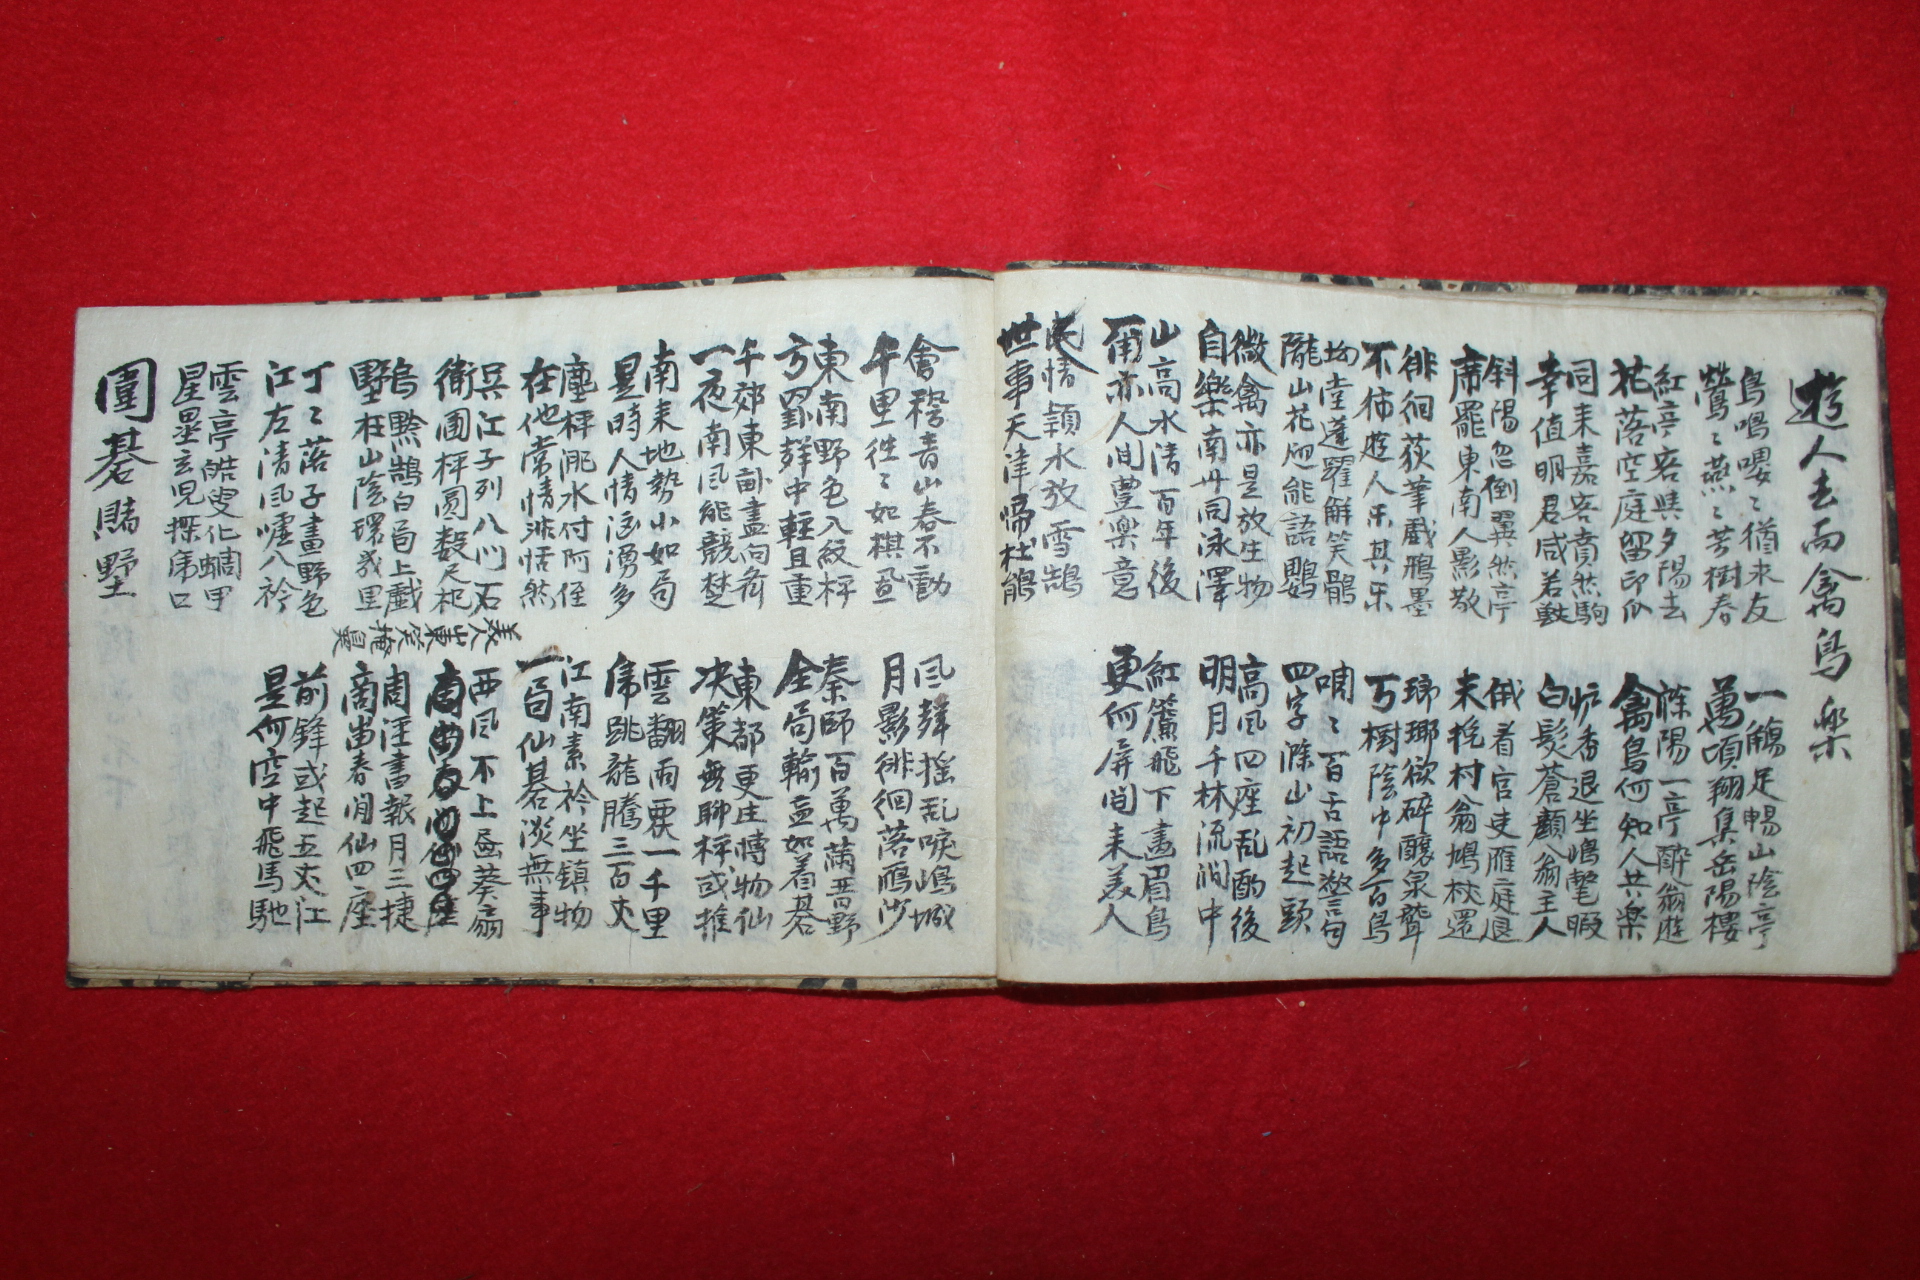 遊人去而禽鳥樂
鳥鳴嚶々猶來友
鶯々燕々芳樹春
紅亭客與夕陽去
花落空庭留印爪
同来嘉客賁然駒
幸值明君咸若獸
斜陽忽倒翼然亭
席罷東南人影散
徘徊荻筆戲鴉墨
不怖遊人乐其乐
坳堂蓬翟解笑鶻
隴山花能語鸚
微禽亦是放生物
自樂南舟同泳澤
山高水清百年後
甭亦人间豊樂意
情穎水放雪鵠
世事天津啼杜鵑
一觴足暢山陰亭
萬頃翔集岳陽樓
滁陽一亭醉翁遊
禽鳥何知人共樂
炉香退坐嶋鼈暇
白髮蒼顏翁主人
俄看官吏雁庭退
末挽村翁鳩杖還
瑯瑯欲碎釀泉聲
丂樹陰中多百鳥
啁々百舌語驚句
四字滁山初起頭
高風四座乱酌後
明月千林流澗中
紅簾飛下畫眉鳥
更何屏间来美人
會稽青山春不動
千里徃々如棋
東南野色入紋枰
方罫群中輕且重
千郊東畝盡向
一夜南風能競楚
南来地勢小如局
是時人情洶湧多
塵枰淝水付阿侄
在他常情淡恬然
兵江子列八门石
衛圃枰圆数尺杞
烏黔鵠白局上戲
墅在山陰環幾里
丁々落子畫野色
江左清風嘘八衿
雲亭皓叟化蜩甲
星星玄児探虎口
風聲摇乱唳嶋城
月影徘徊落鴈沙
秦師百萬滿晋野
全局輸盡如着碁
東都更庄博物仙
决策無聊枰或推
雲翻雨覆一千里
虎跳龍騰三百丈
江南素衿坐鎮物
一局仙碁淡無事
西風不上蒲葵扇
美人山東笑
周滛書報月三捷
商嵓春闲仙四座
前鋒或起五丈江
是何空中飛馬馳
圍碁賭墅